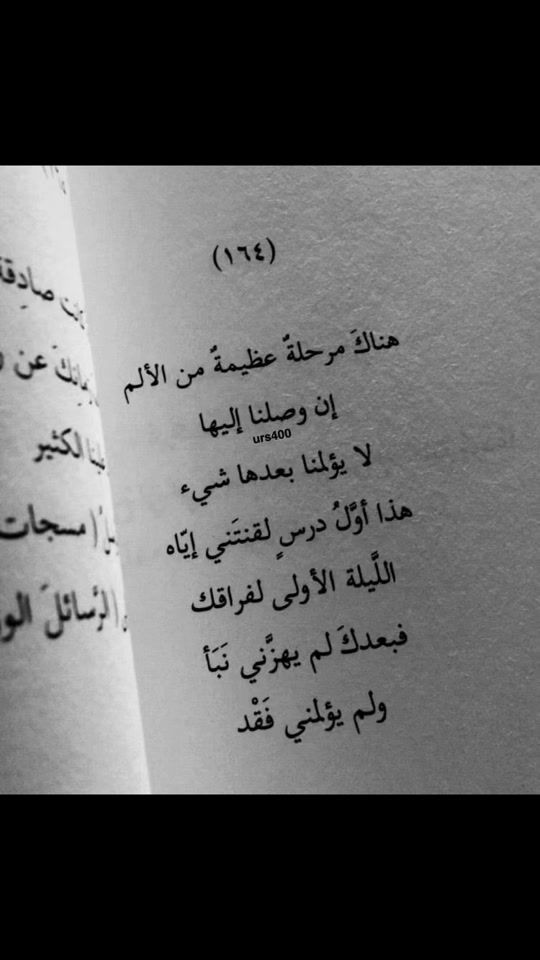 (١٦٤)
هناكَ مرحلةٌ عظيمةٌ من الألم
إن وصلنا إليها
urs400
لا يؤلمنا بعدها شيء
هذا أوَّلُ درسٍ لقنتَني إيّاه
اللَّيلة الأولى لفراقك
فبعدكَ لم يهزَّني نَبَأ
ولم يؤلمني فَقْد
صادِقة
عن
الكثير
مسجات
الرَّسائلَ